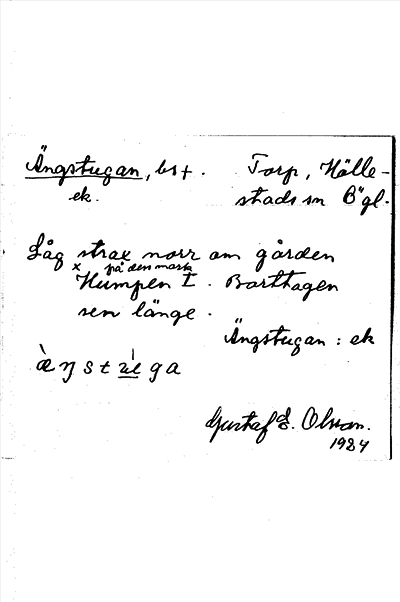 Ängstugan, bs +. Torp, Hälle-
ek. stads sn Bgl.
Låg strax norr om gården
x på dens mark
Humpen I. Borttagen
sen länge.
Ängstugan : ek
Gustaf E. Olsson.
1984